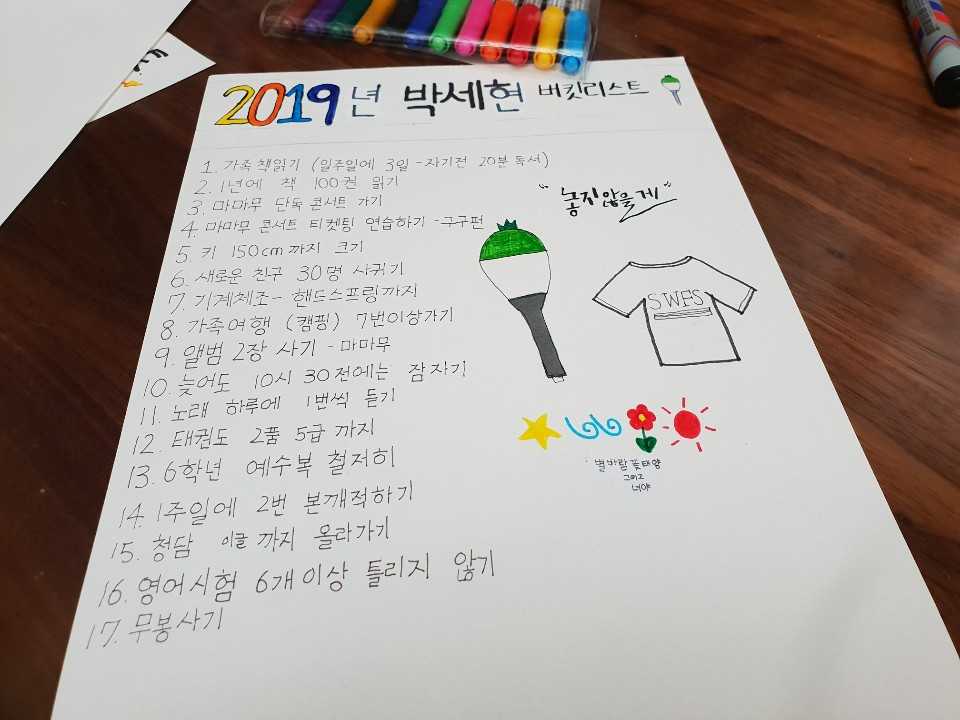 2019년 박세현 버킷리스트
1. 가족책읽기 (일주일에 3일 - 자기전 20분 독서)
2. 1년에 책 100권 읽기
3. 마마무 단독 콘서트 가기
4. 마마무 콘서트 티켓팅 연습하기 - 구구편
5. 키 150cm까지 크기
6. 새로운 친구 30명 사귀기
7. 기계체조 - 핸드스프링까지
8. 가족여행 (캠핑) 7번이상가기
9. 앨범 2장 사기 - 마마무
10. 늦어도 10시 30전에는 잠자기
11. 노래 하루에 1번씩 듣기
12. 태권도 2품 5급 까지
13. 6학년 예수복 철저히
14. 1주일에 2번 본깨적하기
15. 청담 이글 까지 올라가기
16. 영어시험 6개이상 틀리지 않기
17. 무봉사기
"놓지않을게"
SWFS
별바람꽃태양
그리고
너야